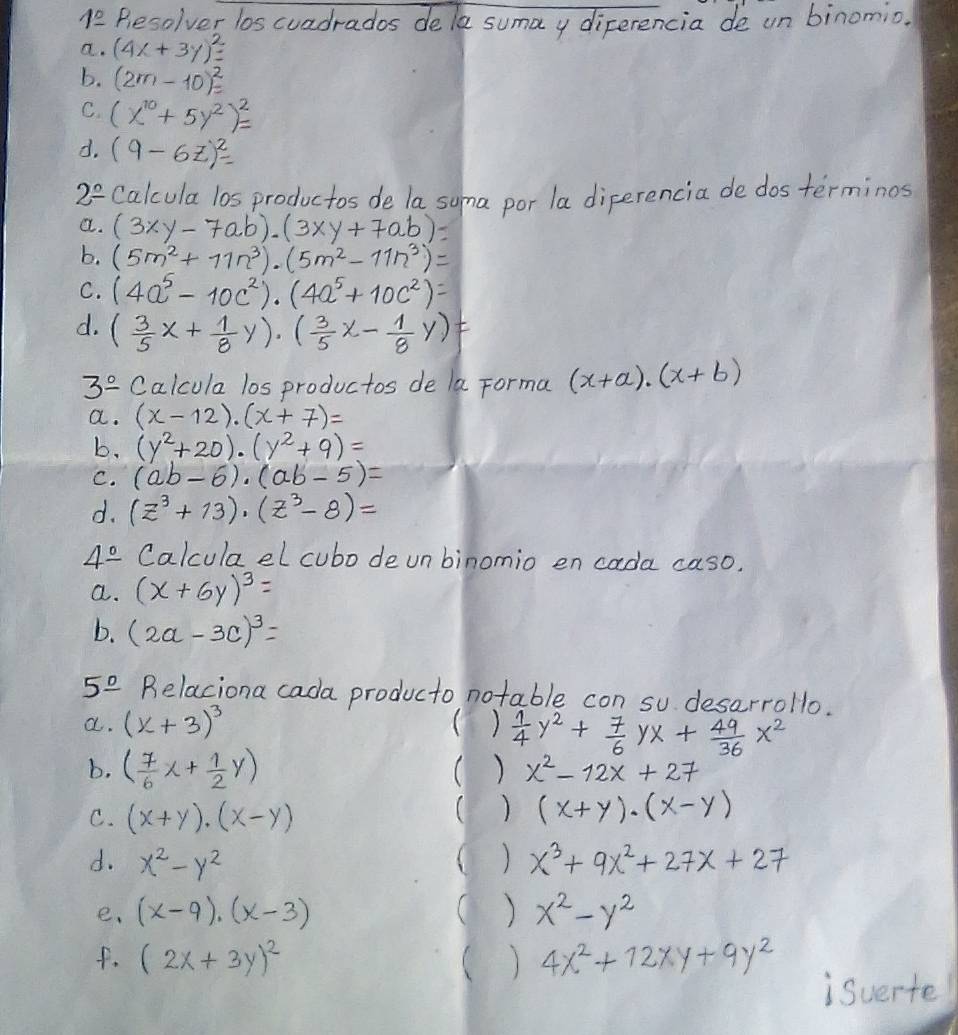 1º Resolver los cuadrados de la suma y diferencia de un binomio.
a. (4x + 3y)²=
b. (2m - 10)²=
c. (x¹⁰ + 5y²)²=
d. (9 - 6z)²=
2º Calcula los productos de la suma por la diferencia de dos términos
a. (3xy - 7ab).(3xy + 7ab)=
b. (5m² + 11n³).(5m² - 11n³)=
c. (4a⁵ - 10c²).(4a⁵ + 10c²)=
d. (3/5 x + 1/8 y).(3/5 x - 1/8 y)=
3º Calcula los productos de la forma (x+a).(x+b)
a. (x - 12).(x + 7)=
b. (y²+20).(y²+9)=
c. (ab - 6).(ab - 5)=
d. (z³ + 13).(z³ - 8)=
4º Calcula el cubo de un binomio en cada caso.
a. (x + 6y)³=
b. (2a - 3c)³=
5º Relaciona cada producto notable con su desarrollo.
a. (x + 3)³ ( ) 1/4 y² + 7/6 yx + 49/36 x²
b. (7/6 x + 1/2 y) ( ) x² - 12x + 27
c. (x+y).(x-y) ( ) (x+y).(x-y)
d. x² - y² ( ) x³ + 9x² + 27x + 27
e. (x-9).(x-3) ( ) x² - y²
f. (2x + 3y)² ( ) 4x² + 12xy + 9y²
¡Suerte!